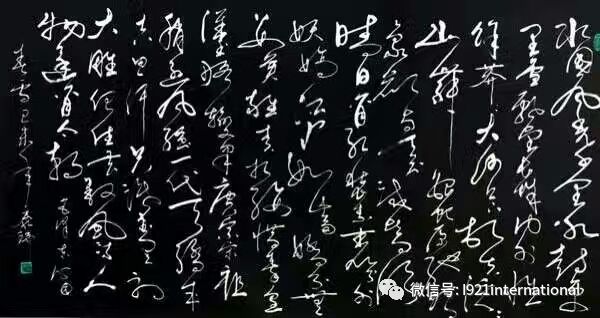 北国风光千里冰封万
里雪飘望长城内外惟
馀莽莽大河上下顿失滔
滔山舞银蛇原驰蜡
象欲与天公试比高须
晴日看红装素裹分外
妖娆江山如此多娇引无
数英雄竞折腰惜秦皇
汉武略输文采唐宗宋祖
稍逊风骚一代天骄成
吉思汗只识弯弓射
大雕俱往矣数风流人
物还看今朝 毛泽东沁园
春雪
微信号: l921international